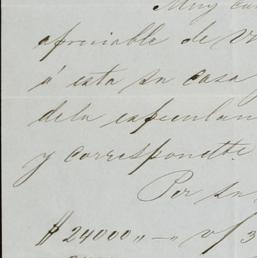 Muy
apreciable de V
á esta su casa
dela especulan
y correspondte.
Por su
$ 24000,, —,, v/ 3